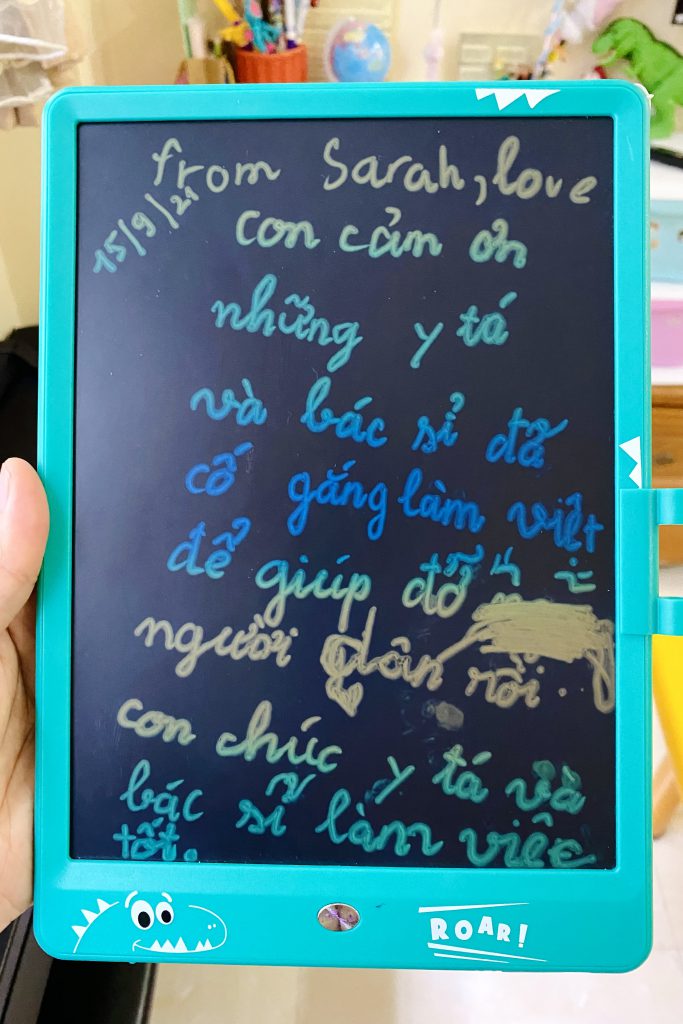 from Sarah, love
15/9/21
con cản ơn
những y tá
và bác sỉ đã
cố gắng làm việt
để giúp đỡ
người dân rồi.
con chúc y tá và
bác sĩ làm việc
tốt.
ROAR!